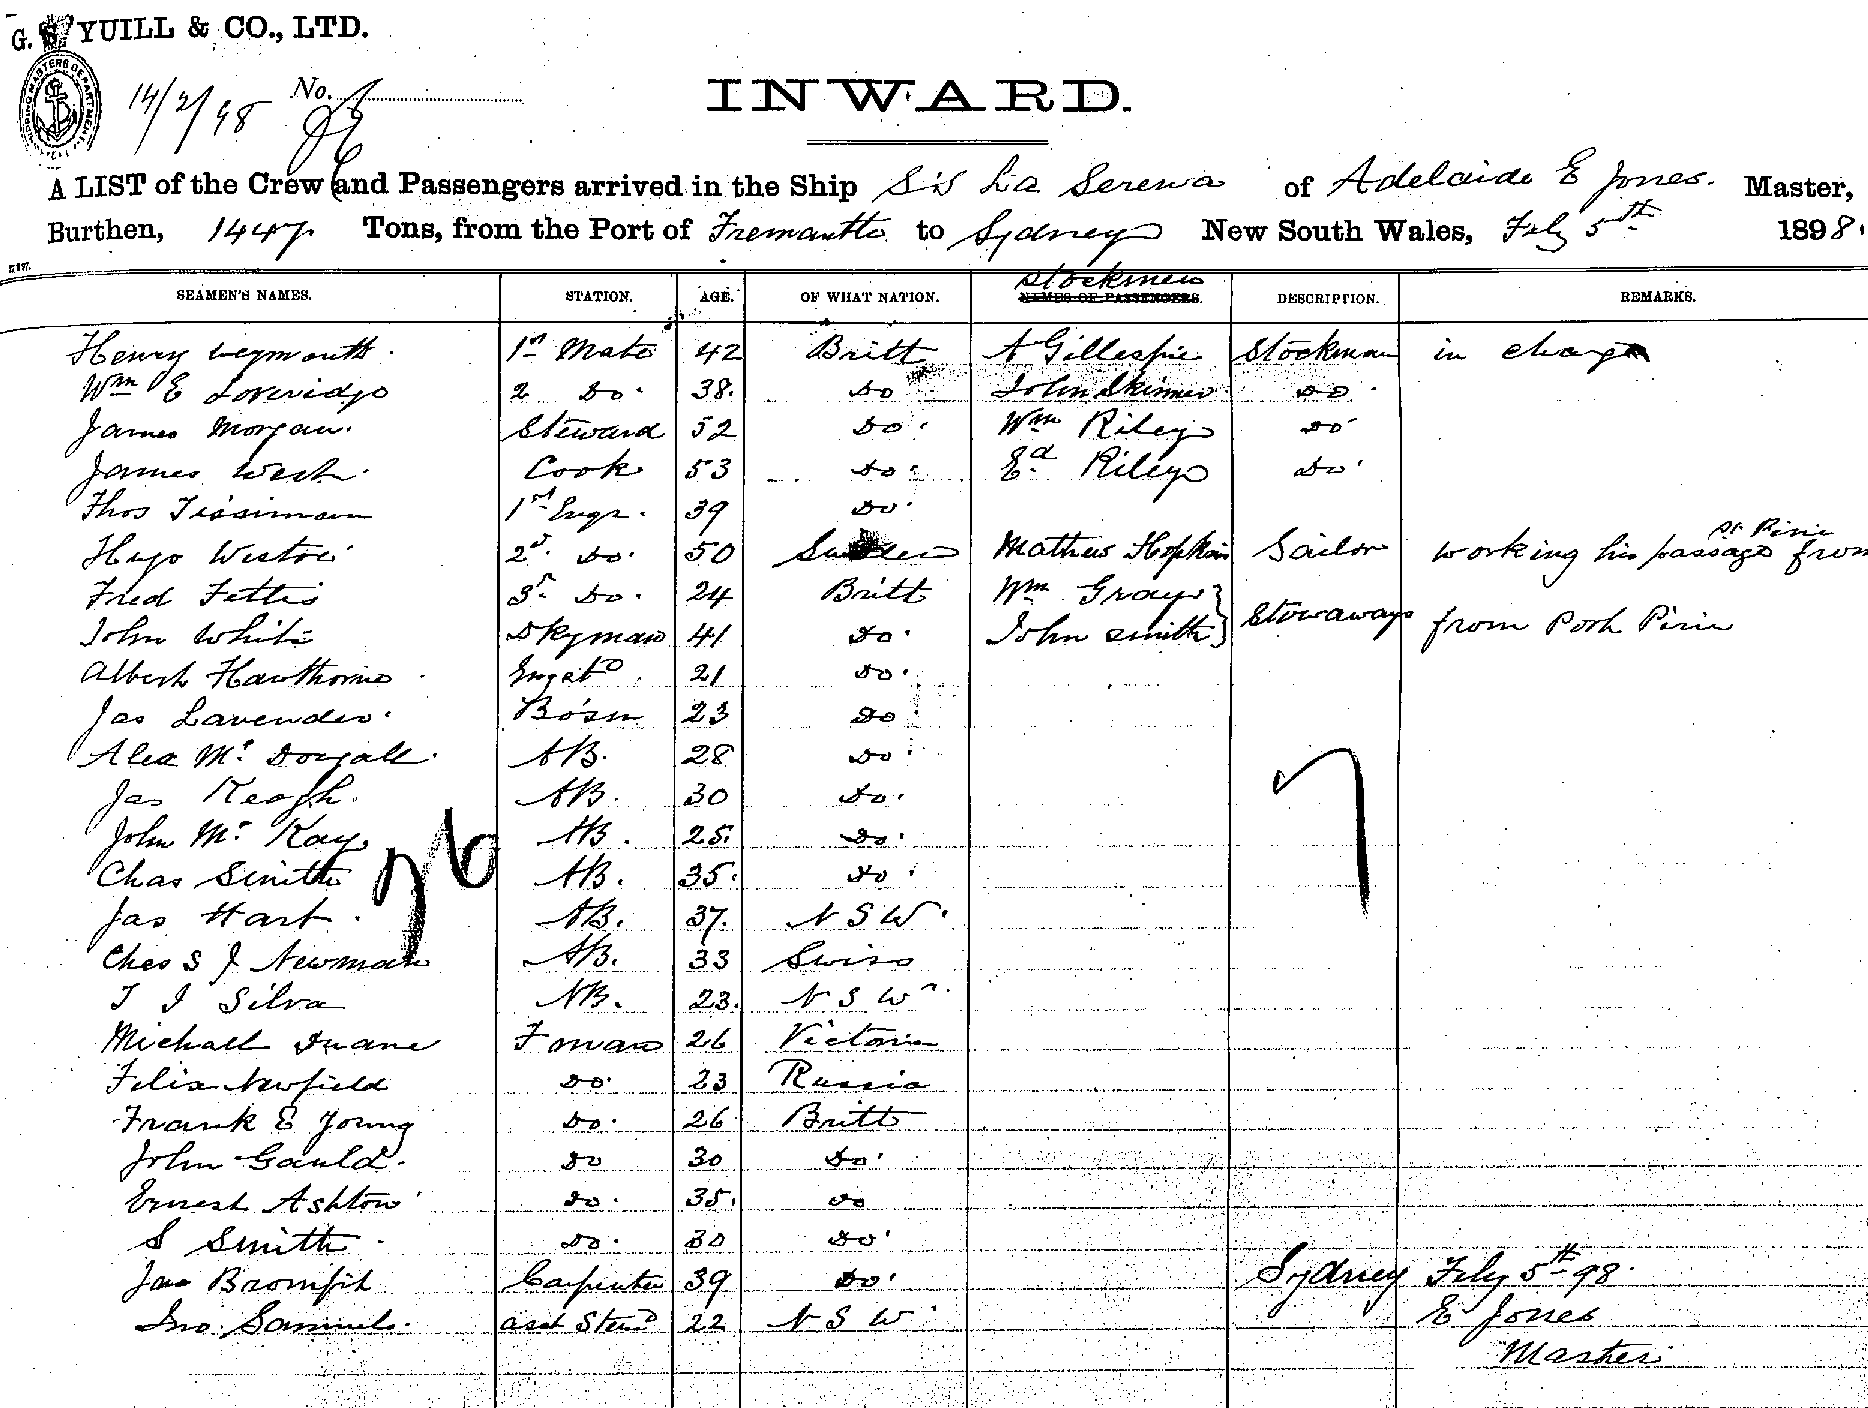 G. S. YUILL & CO., LTD.
SHIPPING MASTERS DEPARTMENT
14/2/98 No.
INWARD.
A LIST of the Crew and Passengers arrived in the Ship S.S La Serena of Adelaide E Jones. Master,
Burthen, 1447 Tons, from the Port of Fremantle to Sydney New South Wales, Feby 5th 1898.
SEAMEN'S NAMES. STATION. AGE. OF WHAT NATION. Stockmen NAMES OF PASSENGERS. DESCRIPTION. REMARKS.
Henry Weymouth 1st Mate 42 Britt A Gillespie Stockman in charge
Wm E Loveridge 2 Do. 38. Do John Skinner Do
James Morgan. Steward 52 Do. Wm Riley Do
James West. Cook 53 Do. Ed Riley Do.
Thos Tissiman 1st Engr. 39 Do.
Hugo 2d. Do. 50 Sweden Mathew Hopkins Sailor working his passage from Pt Pirie
Fred Fettis 3rd Do. 24 Britt Wm Gray } Stowaways
John White Dkyman 41 Do. John Smith } from Port Pirie
Albert Hawthorne 21 Do.
Jas Lavender. Bosn 23 Do
Alex Mc Dougall. AB. 28 Do
Jas Keogh. AB. 30 Do.
John Mc Kay AB. 25. Do.
Chas Smith AB. 35. Do
26 7
Jas Hart. AB. 37. N S W.
Chas S J Newman AB. 33 Swiss
T J Silva AB. 23. N S W
Michall Duane Fman 26 Victoria
Felix Newfield Do. 23 Russia
Frank E Young Do. 26 Britt
John Gauld. Do 30 Do.
Ernest Ashton Do. 35. Do
S Smith. Do. 30 Do
Jas Bromfit Carpenter 39 Do. Sydney Feby 5th 98.
Jno. Samuels. asst Stewd 22 N S W E Jones
Master